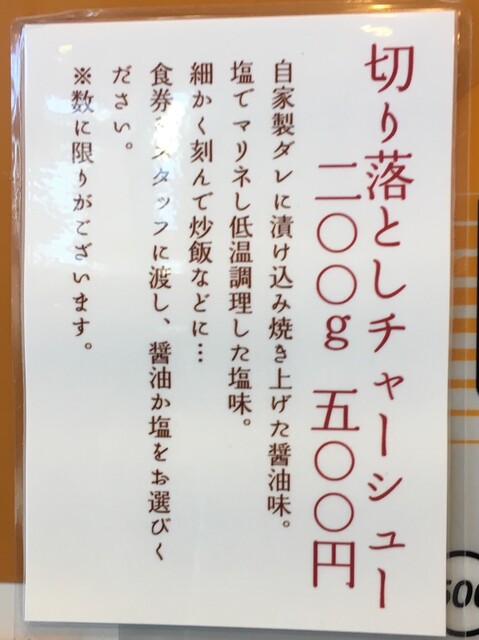 切り落としチャーシュー
二〇〇g 五〇〇円
自家製ダレに漬け込み焼き上げた醤油味。
塩でマリネし低温調理した塩味。
細かく刻んで炒飯などに…
食券をスタッフに渡し、醤油か塩をお選びく
ださい。
※数に限りがございます。
500